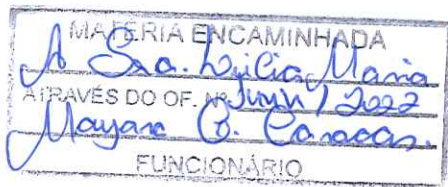 MATÉRIA ENCAMINHADA
A Sra. Lúcia Maria
ATRAVÉS DO OF. Nº / 2022
Mayara B.
FUNCIONÁRIO